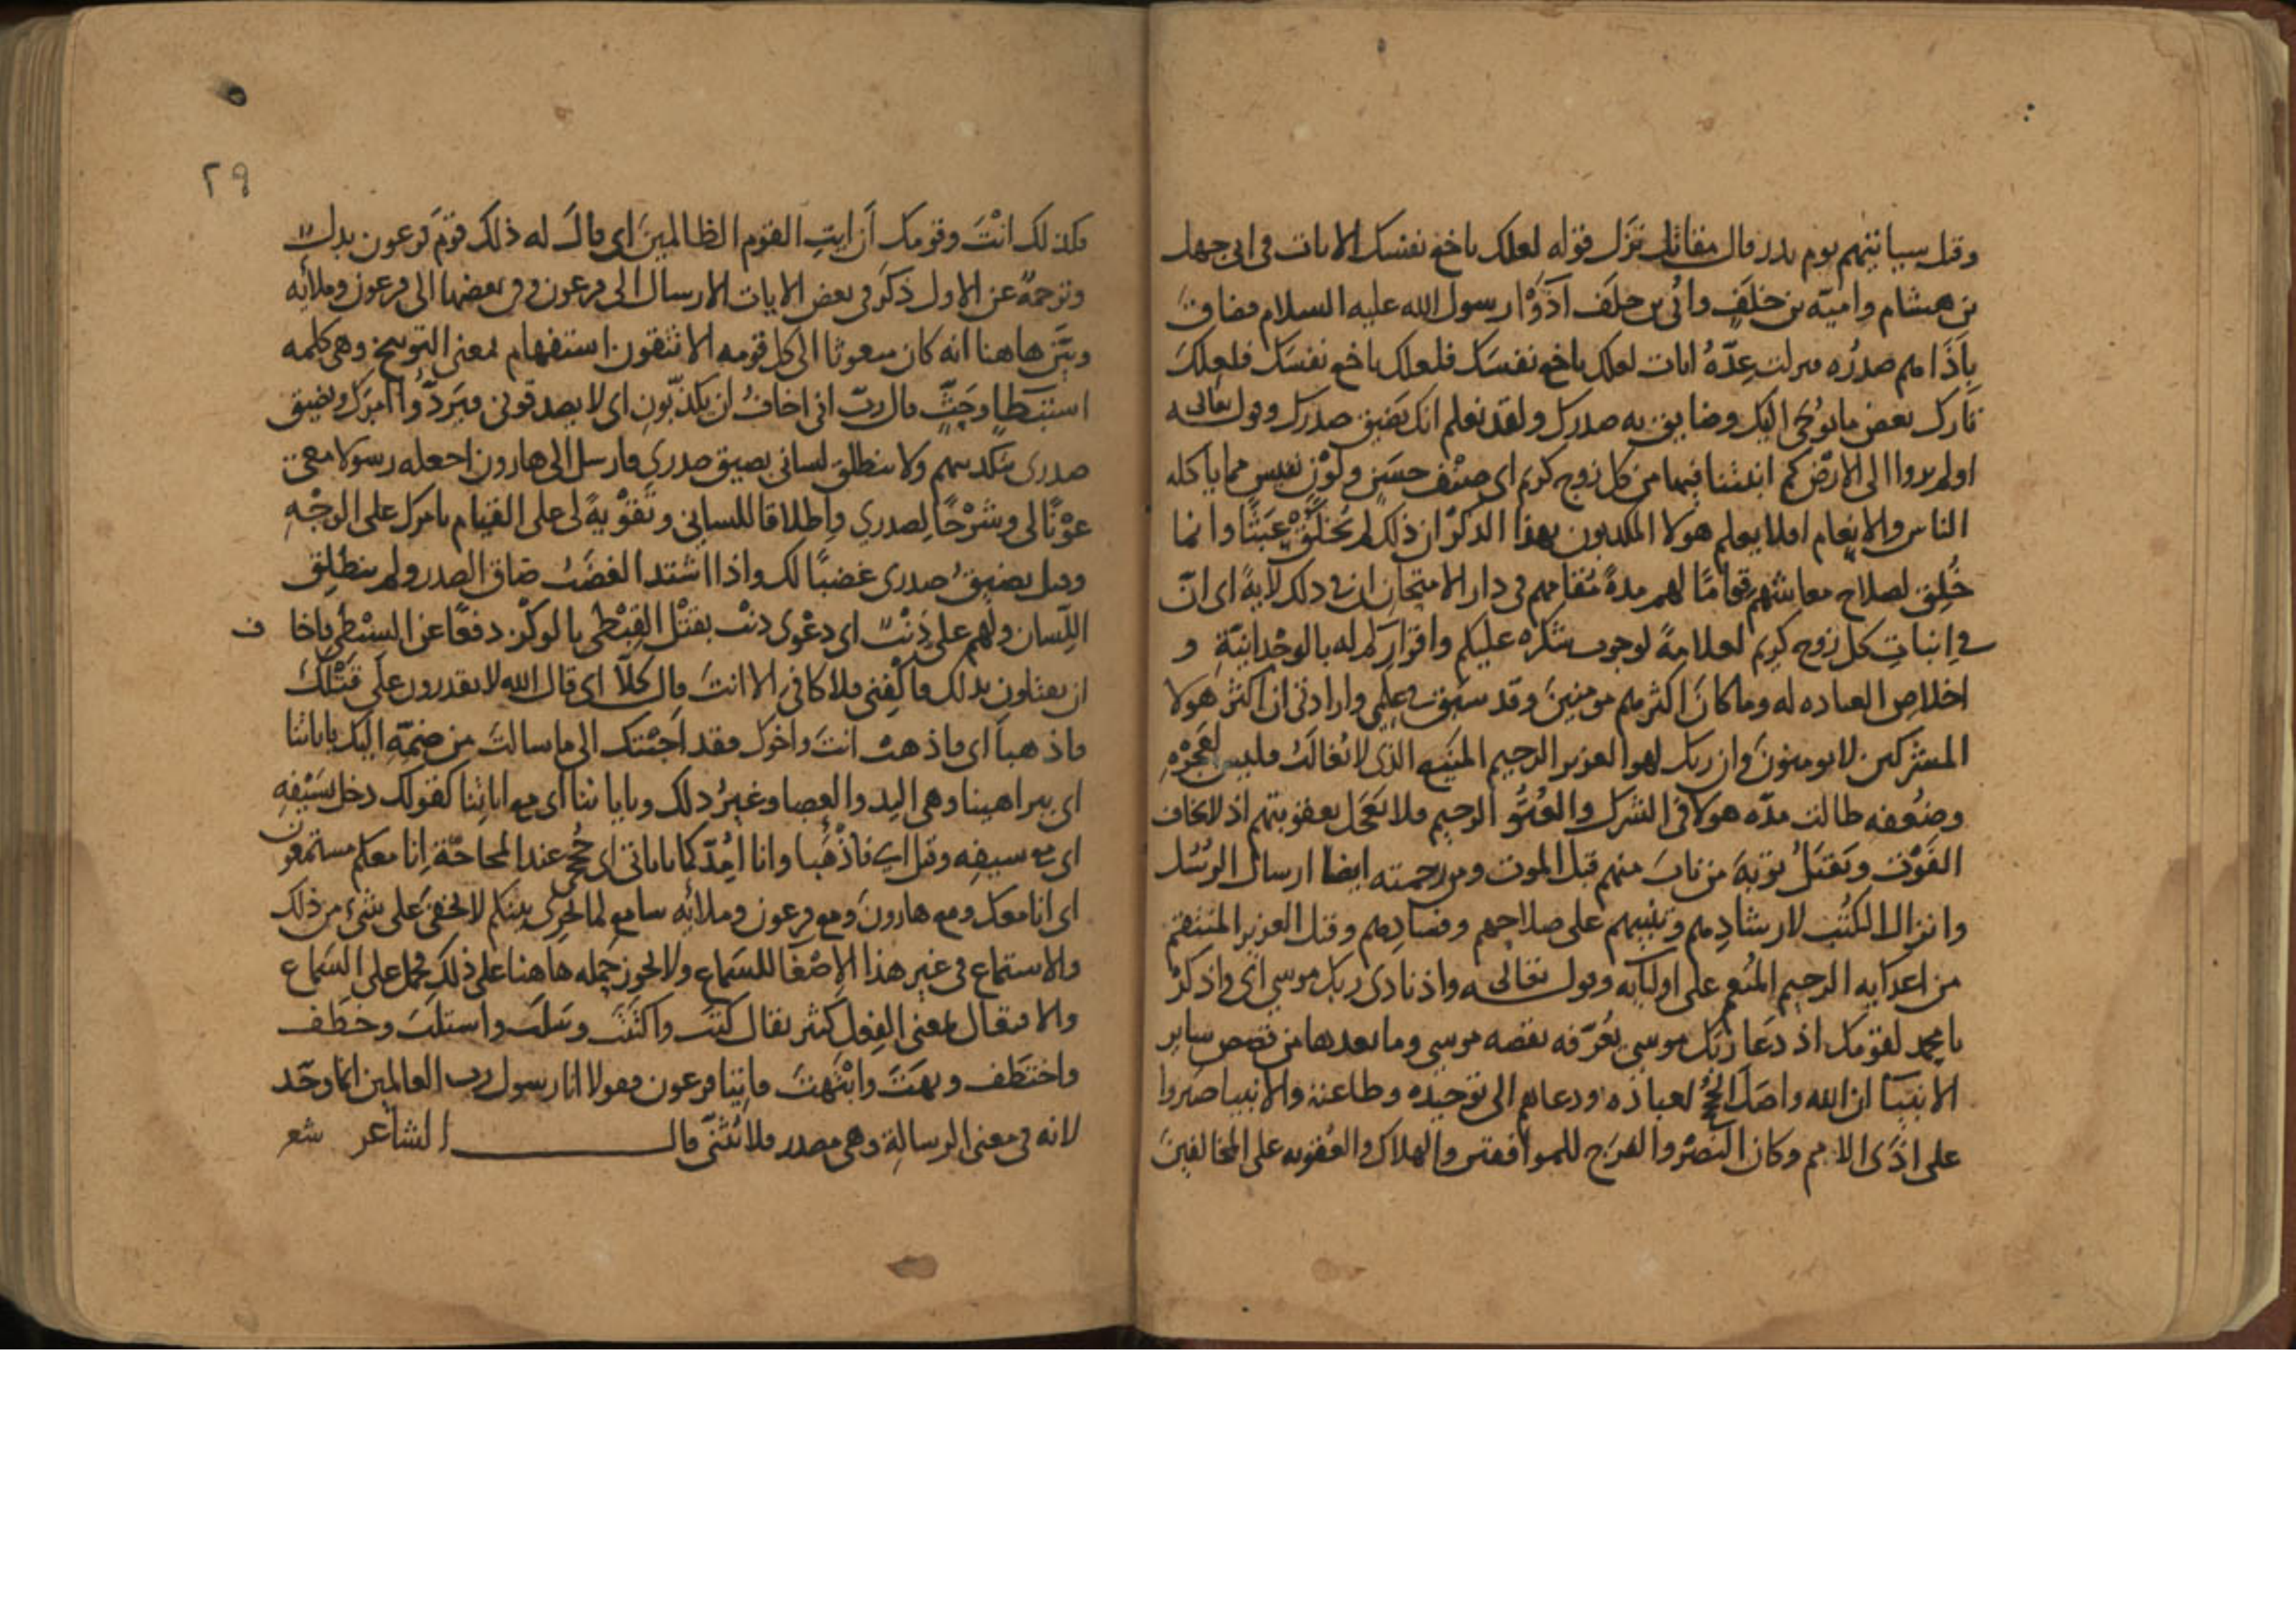 وقيل سيأتيهم يوم بدر وقال مقاتل نزل قوله لعلك باخع نفسك الايات في ابي جهل
بن هشام وامية بن خلف وأبي بن خلف آذوا رسول الله عليه السلام فضاق
بأذاهم صدره فنزلت عدة ايات لعلك باخع نفسك فلعلك باخع نفسك فلعلك
تارك بعض ما يوحى اليك وضايق به صدرك ولقد نعلم انك يضيق صدرك وقوله تعالى
اولم يروا الى الارض كم انبتنا فيها من كل زوج كريم اي صنف حسن ولون نفيس مما يأكله
الناس والانعام افلا يعلم هولا المكذبون بهذا الذكر ان ذلك لم يخلق عبثا وانما
خلق لصلاح معاشهم قواما لهم مدة مقامهم في دار الامتحان ان في ذلك لاية اي ان
في انبات كل زوج كريم لعلامة لوجوب شكره عليكم واقراركم له بالوحدانية و
اخلاص العباده له وما كان اكثرهم مومنين وقد سبق في علمي وارادتي ان اكثر هولا
المشركين لا يومنون وان ربك لهو العزيز الرحيم المنيع الذي لا يغالب فليس لعجزه
وضعفه طالت مده هولا في الشرك والعتو الرحيم فلا يعجل بعقوبتهم اذ لا يخاف
الفوت ويقبل توبة من تاب منهم قبل الموت ومن رحمته ايضا ارسال الرسل
وانزال الكتب لارشادهم وتنبيههم على صلاحهم وفسادهم وقيل العزيز المنتقم
من اعدايه الرحيم المنعم على اوليايه وقوله تعالى واذ نادى ربك موسى اي واذكر
يا محمد لقومك اذ دعا ربك موسى يعرفه بقصه موسى وما بعدها من قصص ساير
الانبيا ان الله واصل الحجج لعباده ودعاهم الى توحيده وطاعته والانبيا صبروا
على اذى الامم وكان النصر والفرج للموافقين والهلاك والعقوبه على المخالفين
٢٩
فكذلك انت وقومك أن ايت القوم الظالمين اي قال له ذلك قوم فرعون بدل
وترجمة عن الاول ذكر في بعض الايات الارسال الى فرعون وفي بعضها الى فرعون وملأيه
وبين هاهنا انه كان مبعوثا الى كل قومه الا تتقون استفهام بمعنى التوبيخ وهي كلمه
استبطاء وحث قال رب اني اخاف ان يكذبون اي لا يصدقوني فيردوا امرك ويضيق
صدري بتكذيبهم ولا ينطلق لساني بضيق صدري فارسل الى هارون اجعله رسولا معي
عونا لي وشرحا لصدري واطلاقا للساني وتقوية لي على القيام بامرك على الوجه
وقيل يضيق صدري غضبا لك واذا اشتد الغضب ضاق الصدر ولم ينطلق
اللسان ولهم علي ذنب اي دعوى ذنب بقتل القبطي بالوكز دفعا عن السبطي فاخاف
ان يقتلون بذلك فاكفني فلا كافي الا انت قال كلا اي قال الله لا يقدرون على قتلك
فاذهبا اي فاذهب انت واخوك فقد اجبتك الى ما سالت من ضمه اليك باياتنا
اي ببراهيننا وهي اليد والعصا وغير ذلك وباياتنا اي مع اياتنا كقولك دخل بسيفه
اي مع سيفه وقيل اي فاذهبا وانا امدكما باياتي اي حججي عند المحاجة إنا معكم مستمعون
اي انا معك ومع هارون ومع فرعون وملأيه سامع لما يجري بينكم لا يخفى علي شيء من ذلك
والاستماع في غير هذا الاصغا للسماع ولا يجوز حمله هاهنا على ذلك فحمل على السماع
والافتعال بمعنى الفعل كثير يقال كتب واكتتب وسلب واستلب وخطف
واختطف وبهت وابتهت فاتيا فرعون فقولا انا رسول رب العالمين انما وحد
لانه في معنى الرسالة وهي مصدر فلا يثنى قال الشاعر شعر